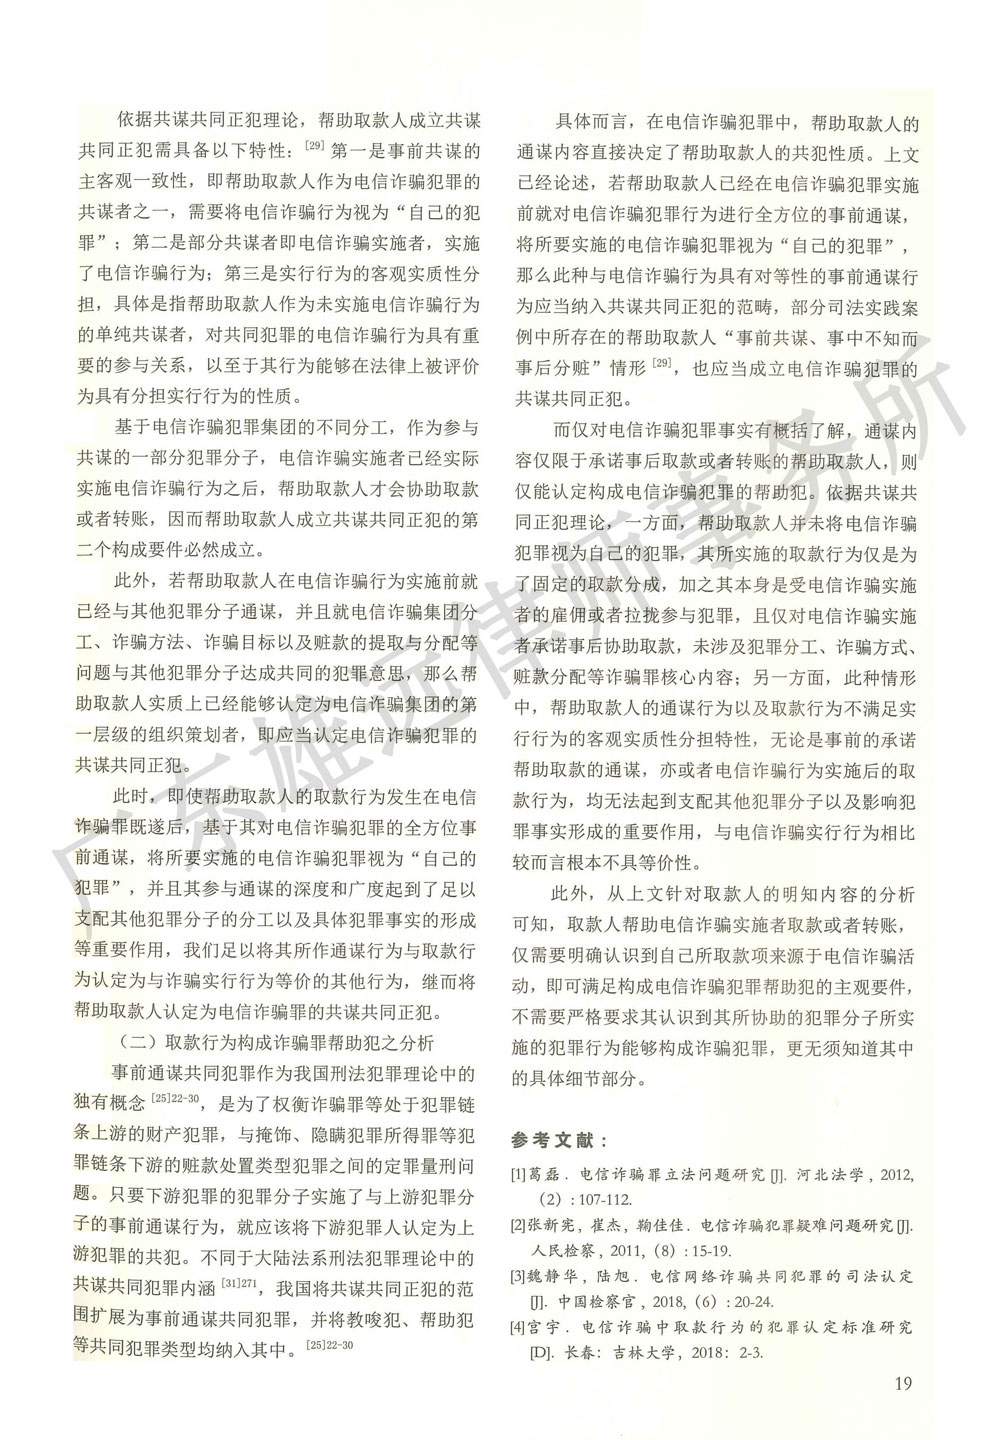 依据共谋共同正犯理论，帮助取款人成立共谋
共同正犯需具备以下特性：[29] 第一是事前共谋的
主客观一致性，即帮助取款人作为电信诈骗犯罪的
共谋者之一，需要将电信诈骗行为视为“自己的犯
罪”；第二是部分共谋者即电信诈骗实施者，实施
了电信诈骗行为；第三是实行行为的客观实质性分
担，具体是指帮助取款人作为未实施电信诈骗行为
的单纯共谋者，对共同犯罪的电信诈骗行为具有重
要的参与关系，以至于其行为能够在法律上被评价
为具有分担实行行为的性质。
基于电信诈骗犯罪集团的不同分工，作为参与
共谋的一部分犯罪分子，电信诈骗实施者已经实际
实施电信诈骗行为之后，帮助取款人才会协助取款
或者转账，因而帮助取款人成立共谋共同正犯的第
二个构成要件必然成立。
此外，若帮助取款人在电信诈骗行为实施前就
已经与其他犯罪分子通谋，并且就电信诈骗集团分
工、诈骗方法、诈骗目标以及赃款的提取与分配等
问题与其他犯罪分子达成共同的犯罪意思，那么帮
助取款人实质上已经能够认定为电信诈骗集团的第
一层级的组织策划者，即应当认定电信诈骗犯罪的
共谋共同正犯。
此时，即使帮助取款人的取款行为发生在电信
诈骗罪既遂后，基于其对电信诈骗犯罪的全方位事
前通谋，将所要实施的电信诈骗犯罪视为“自己的
犯罪”，并且其参与通谋的深度和广度起到了足以
支配其他犯罪分子的分工以及具体犯罪事实的形成
等重要作用，我们足以将其所作通谋行为与取款行
为认定为与诈骗实行行为等价的其他行为，继而将
帮助取款人认定为电信诈骗罪的共谋共同正犯。
（二）取款行为构成诈骗罪帮助犯之分析
事前通谋共同犯罪作为我国刑法犯罪理论中的
独有概念 [25]22-30，是为了权衡诈骗罪等处于犯罪链
条上游的财产犯罪，与掩饰、隐瞒犯罪所得罪等犯
罪链条下游的赃款处置类型犯罪之间的定罪量刑问
题。只要下游犯罪的犯罪分子实施了与上游犯罪分
子的事前通谋行为，就应该将下游犯罪人认定为上
游犯罪的共犯。不同于大陆法系刑法犯罪理论中的
共谋共同犯罪内涵 [31]271，我国将共谋共同正犯的范
围扩展为事前通谋共同犯罪，并将教唆犯、帮助犯
等共同犯罪类型均纳入其中。[25]22-30
具体而言，在电信诈骗犯罪中，帮助取款人的
通谋内容直接决定了帮助取款人的共犯性质。上文
已经论述，若帮助取款人已经在电信诈骗犯罪实施
前就对电信诈骗犯罪行为进行全方位的事前通谋，
将所要实施的电信诈骗犯罪视为“自己的犯罪”，
那么此种与电信诈骗行为具有对等性的事前通谋行
为应当纳入共谋共同正犯的范畴，部分司法实践案
例中所存在的帮助取款人“事前共谋、事中不知而
事后分赃”情形 [29]，也应当成立电信诈骗犯罪的
共谋共同正犯。
而仅对电信诈骗犯罪事实有概括了解，通谋内
容仅限于承诺事后取款或者转账的帮助取款人，则
仅能认定构成电信诈骗犯罪的帮助犯。依据共谋共
同正犯理论，一方面，帮助取款人并未将电信诈骗
犯罪视为自己的犯罪，其所实施的取款行为仅是为
了固定的取款分成，加之其本身是受电信诈骗实施
者的雇佣或者拉拢参与犯罪，且仅对电信诈骗实施
者承诺事后协助取款，未涉及犯罪分工、诈骗方式、
赃款分配等诈骗罪核心内容；另一方面，此种情形
中，帮助取款人的通谋行为以及取款行为不满足实
行行为的客观实质性分担特性，无论是事前的承诺
帮助取款的通谋，亦或者电信诈骗行为实施后的取
款行为，均无法起到支配其他犯罪分子以及影响犯
罪事实形成的重要作用，与电信诈骗实行行为相比
较而言根本不具等价性。
此外，从上文针对取款人的明知内容的分析
可知，取款人帮助电信诈骗实施者取款或者转账，
仅需要明确认识到自己所取款项来源于电信诈骗活
动，即可满足构成电信诈骗犯罪帮助犯的主观要件，
不需要严格要求其认识到其所协助的犯罪分子所实
施的犯罪行为能够构成诈骗犯罪，更无须知道其中
的具体细节部分。
参考文献：
[1]葛磊．电信诈骗罪立法问题研究[J]．河北法学，2012，
（2）：107-112.
[2]张新宪，崔杰，鞠佳佳．电信诈骗犯罪疑难问题研究[J].
人民检察，2011，（8）：15-19.
[3]魏静华，陆旭．电信网络诈骗共同犯罪的司法认定
[J]. 中国检察官，2018,（6）：20-24.
[4]宫宇．电信诈骗中取款行为的犯罪认定标准研究
[D]. 长春：吉林大学，2018：2-3.
19
广东雄远律师事务所